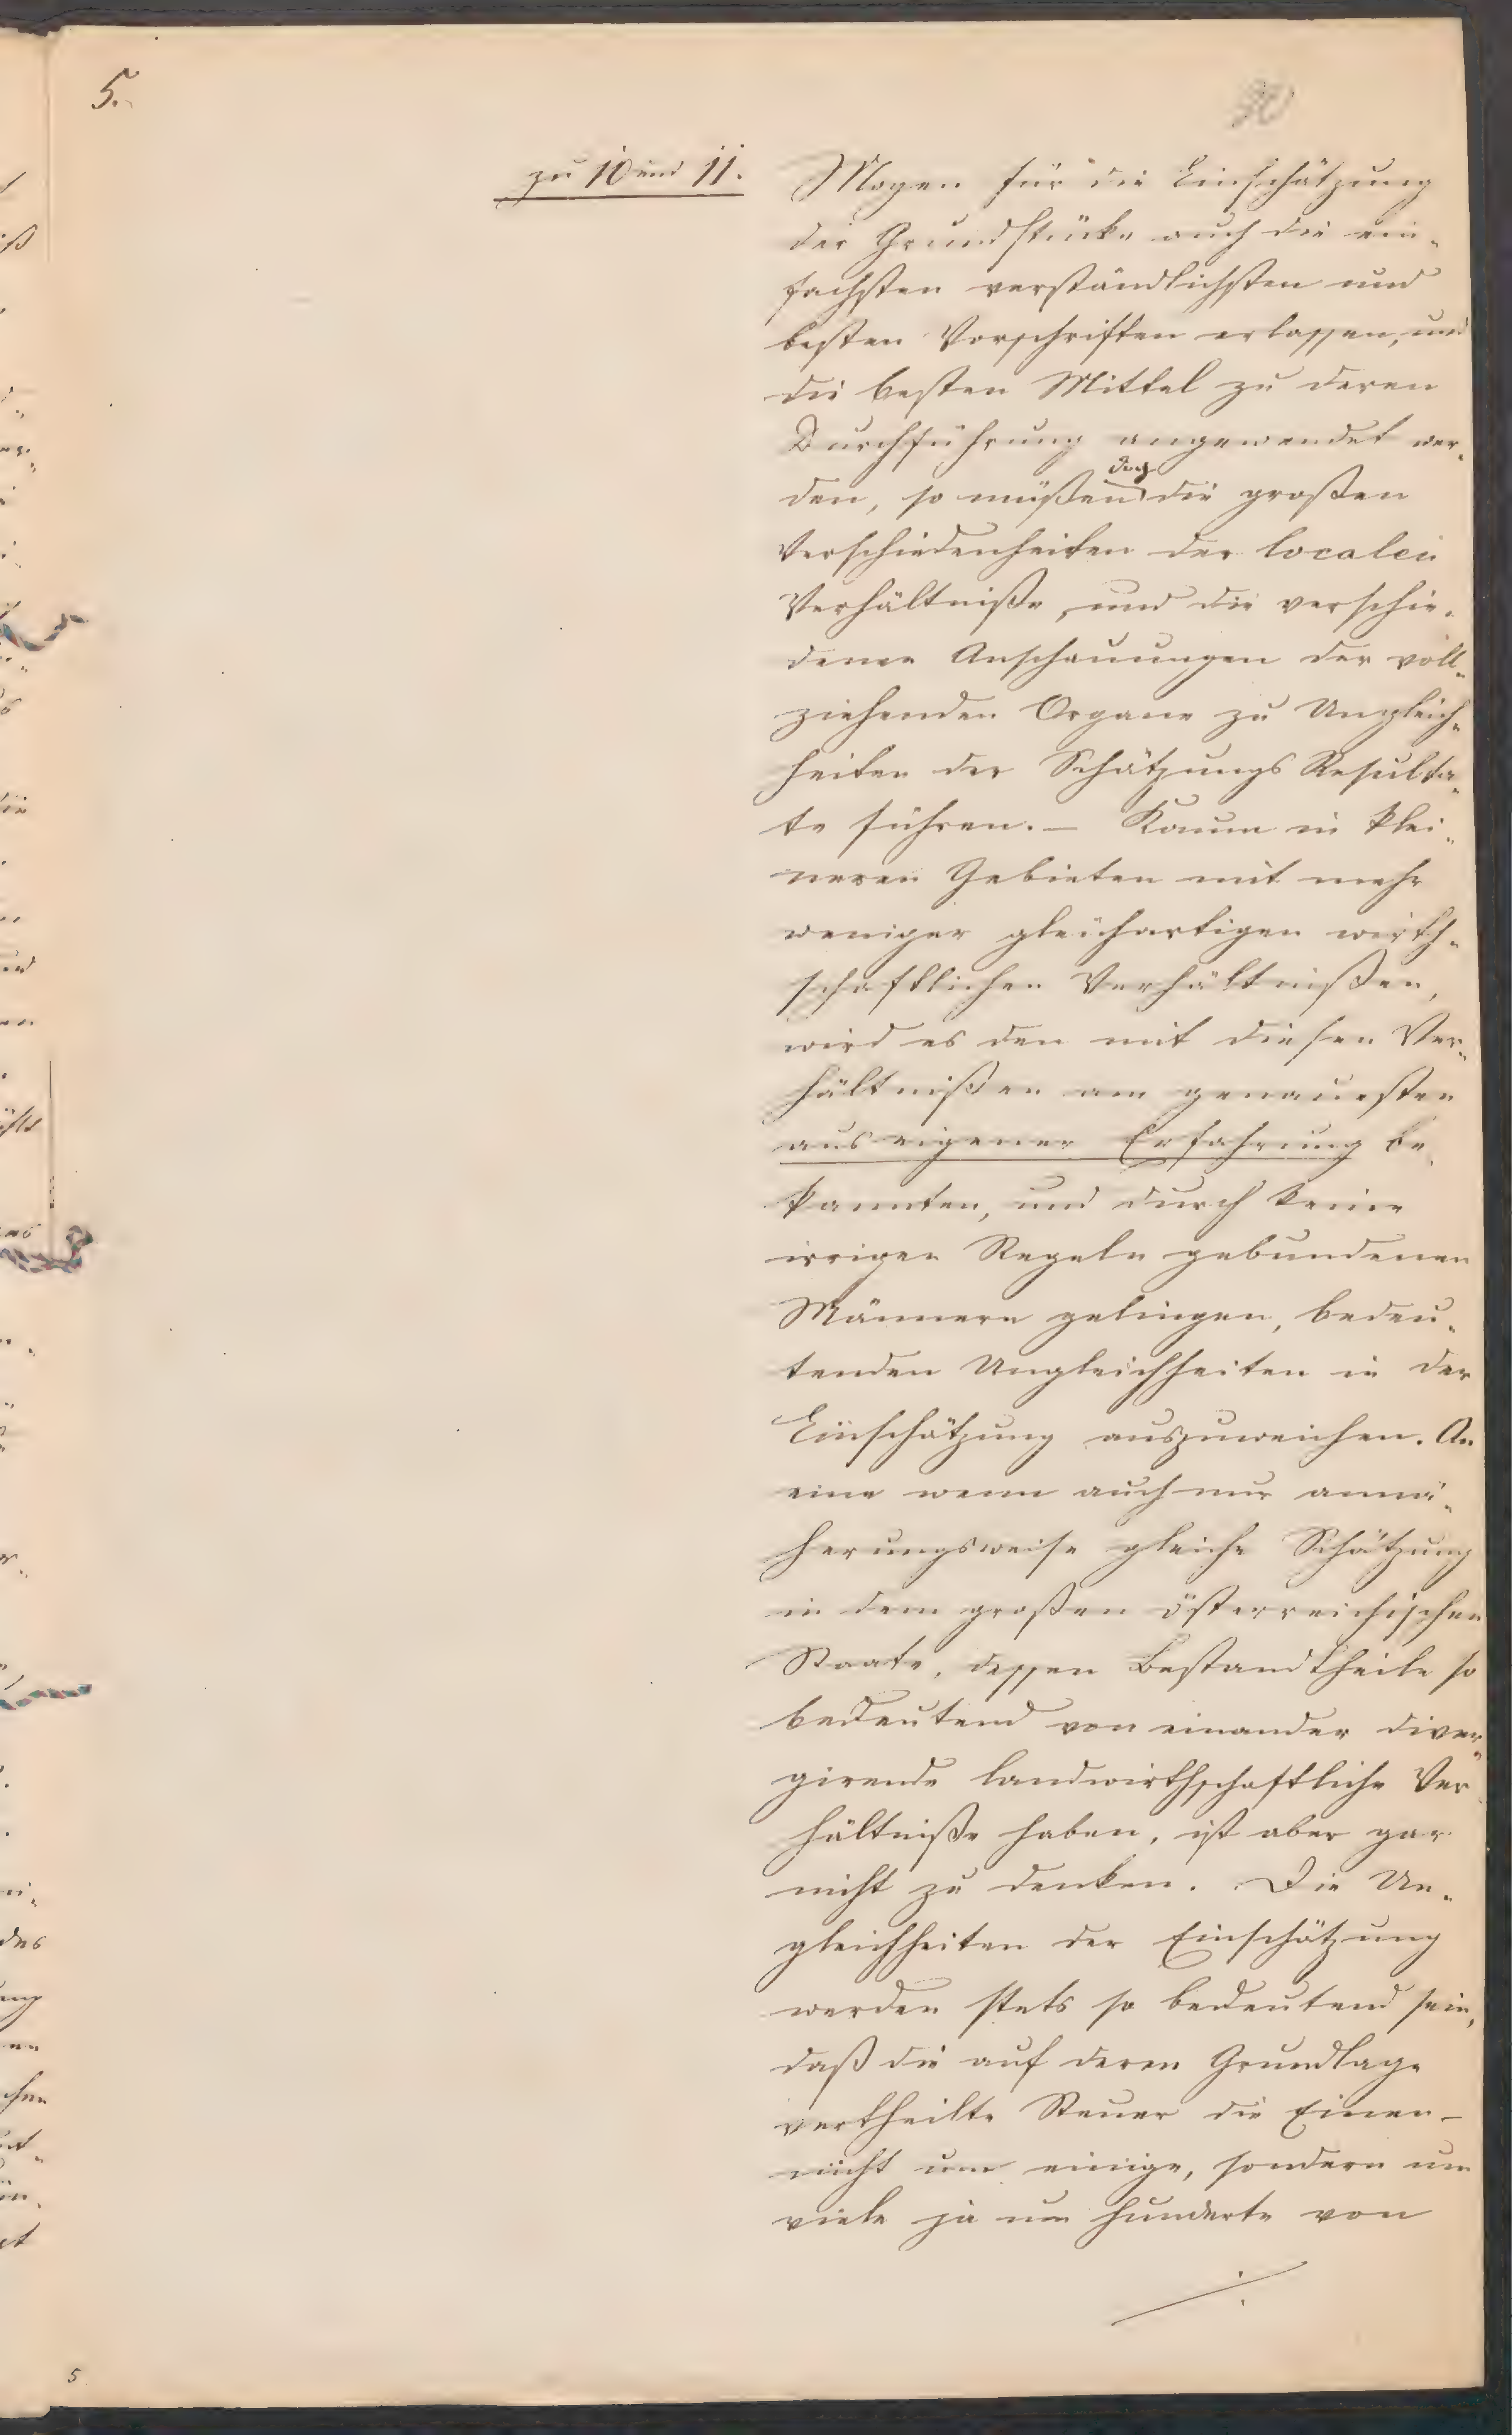 5.
zu 10 und 11.
Mogen für die Einschätzung
der Grundstücke auch die ein„
fachsten verständlichsten und
besten Vorschriften erlassen, und
die besten Mittel zu deren
Durchführung angewendet wer„
doch
den, so müßen die großen
Verschiedenheiten der localen
Verhältniße, und die verschie„
denen Anschauungen der voll„
ziehenden Organe zu Ungleich„
heiten der Schätzungs Resulta„
te führen. – Kaum in klei„
neren Gebieten mit mehr
weniger gleichartigen wirth„
schaftlichen Verhältnißen,
wird es den mit diesen Ver„
hältnißen am genauesten
aus eigener Erfahrung be„
kannten, und durch keine
irrigen Regeln gebundenen
Männern gelingen, bedeu„
tenden Ungleichheiten in der
Einschätzung auszuweichen. An
eine wenn auch nur annä„
herungsweise gleiche Schätzung
in dem großen österreichischen
Staate, dessen Bestandtheile so
bedeutend von einander diver„
girende landwirthschaftliche Ver„
hältniße haben, ist aber gar
nicht zu denken. Die Un„
gleichheiten der Einschätzung
werden stets so bedeutend sein,
daß die auf deren Grundlage
vertheilte Steuer die Einen –
nicht um einige, sondern um
viele ja um hunderte von
./.
5